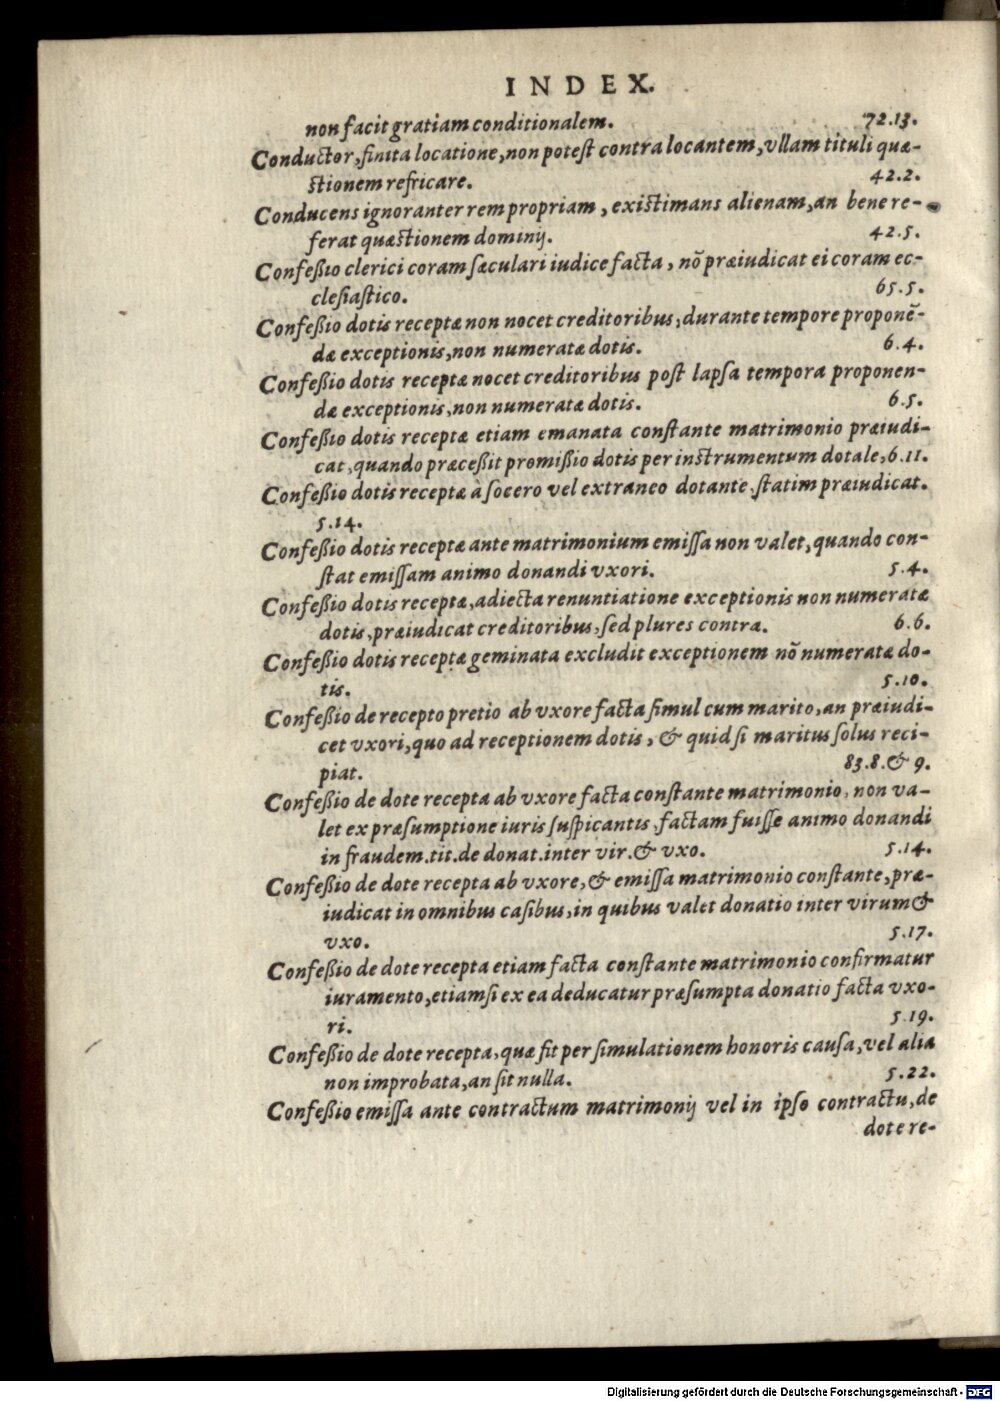 INDEX.
non facit gratiam conditionalem. 72.13.
Conductor, finita locatione, non potest contra locantem, vllam tituli quæ-
stionem refricare. 42.2.
Conducens ignoranter rem propriam, existimans alienam, an bene re-
ferat quæstionem dominij. 42.5.
Confeßio clerici coram sæculari iudice facta, nõ præiudicat ei coram ec-
clesiastico. 65.5.
Confeßio dotis receptæ non nocet creditoribus, durante tempore proponẽ-
dæ exceptionis, non numeratæ dotis. 6.4.
Confeßio dotis receptæ nocet creditoribus post lapsa tempora proponen-
dæ exceptionis, non numeratæ dotis. 6.5.
Confeßio dotis receptæ etiam emanata constante matrimonio præiudi-
cat, quando præceßit promißio dotis per instrumentum dotale, 6.11.
Confeßio dotis receptæ à socero vel extraneo dotante, statim præiudicat.
5.14.
Confeßio dotis receptæ ante matrimonium emissa non valet, quando con-
stat emissam animo donandi vxori. 5.4.
Confeßio dotis receptæ, adiecta renuntiatione exceptionis non numeratæ
dotis, præiudicat creditoribus, sed plures contra. 6.6.
Confeßio dotis receptæ geminata excludit exceptionem nõ numeratæ do-
tis. 5.10.
Confeßio de recepto pretio ab vxore facta simul cum marito, an præiudi-
cet vxori, quo ad receptionem dotis, & quid si maritus solus reci-
piat. 83.8.& 9.
Confeßio de dote recepta ab vxore facta constante matrimonio, non va-
let ex præsumptione iuris suspicantis, factam fuisse animo donandi
in fraudem. tit. de donat. inter vir. & vxo. 5.14.
Confeßio de dote recepta ab vxore, & emissa matrimonio constante, præ-
iudicat in omnibus casibus, in quibus valet donatio inter virum &
vxo. 5.17.
Confeßio de dote recepta etiam facta constante matrimonio confirmatur
iuramento, etiamsi ex ea deducatur præsumpta donatio facta vxo-
ri. 5.19.
Confeßio de dote recepta, quæ fit per simulationem honoris causa, vel alia
non improbata, an sit nulla. 5.22.
Confeßio emissa ante contractum matrimonij vel in ipso contractu, de
dote re-
Digitalisierung gefördert durch die Deutsche Forschungsgemeinschaft - DFG